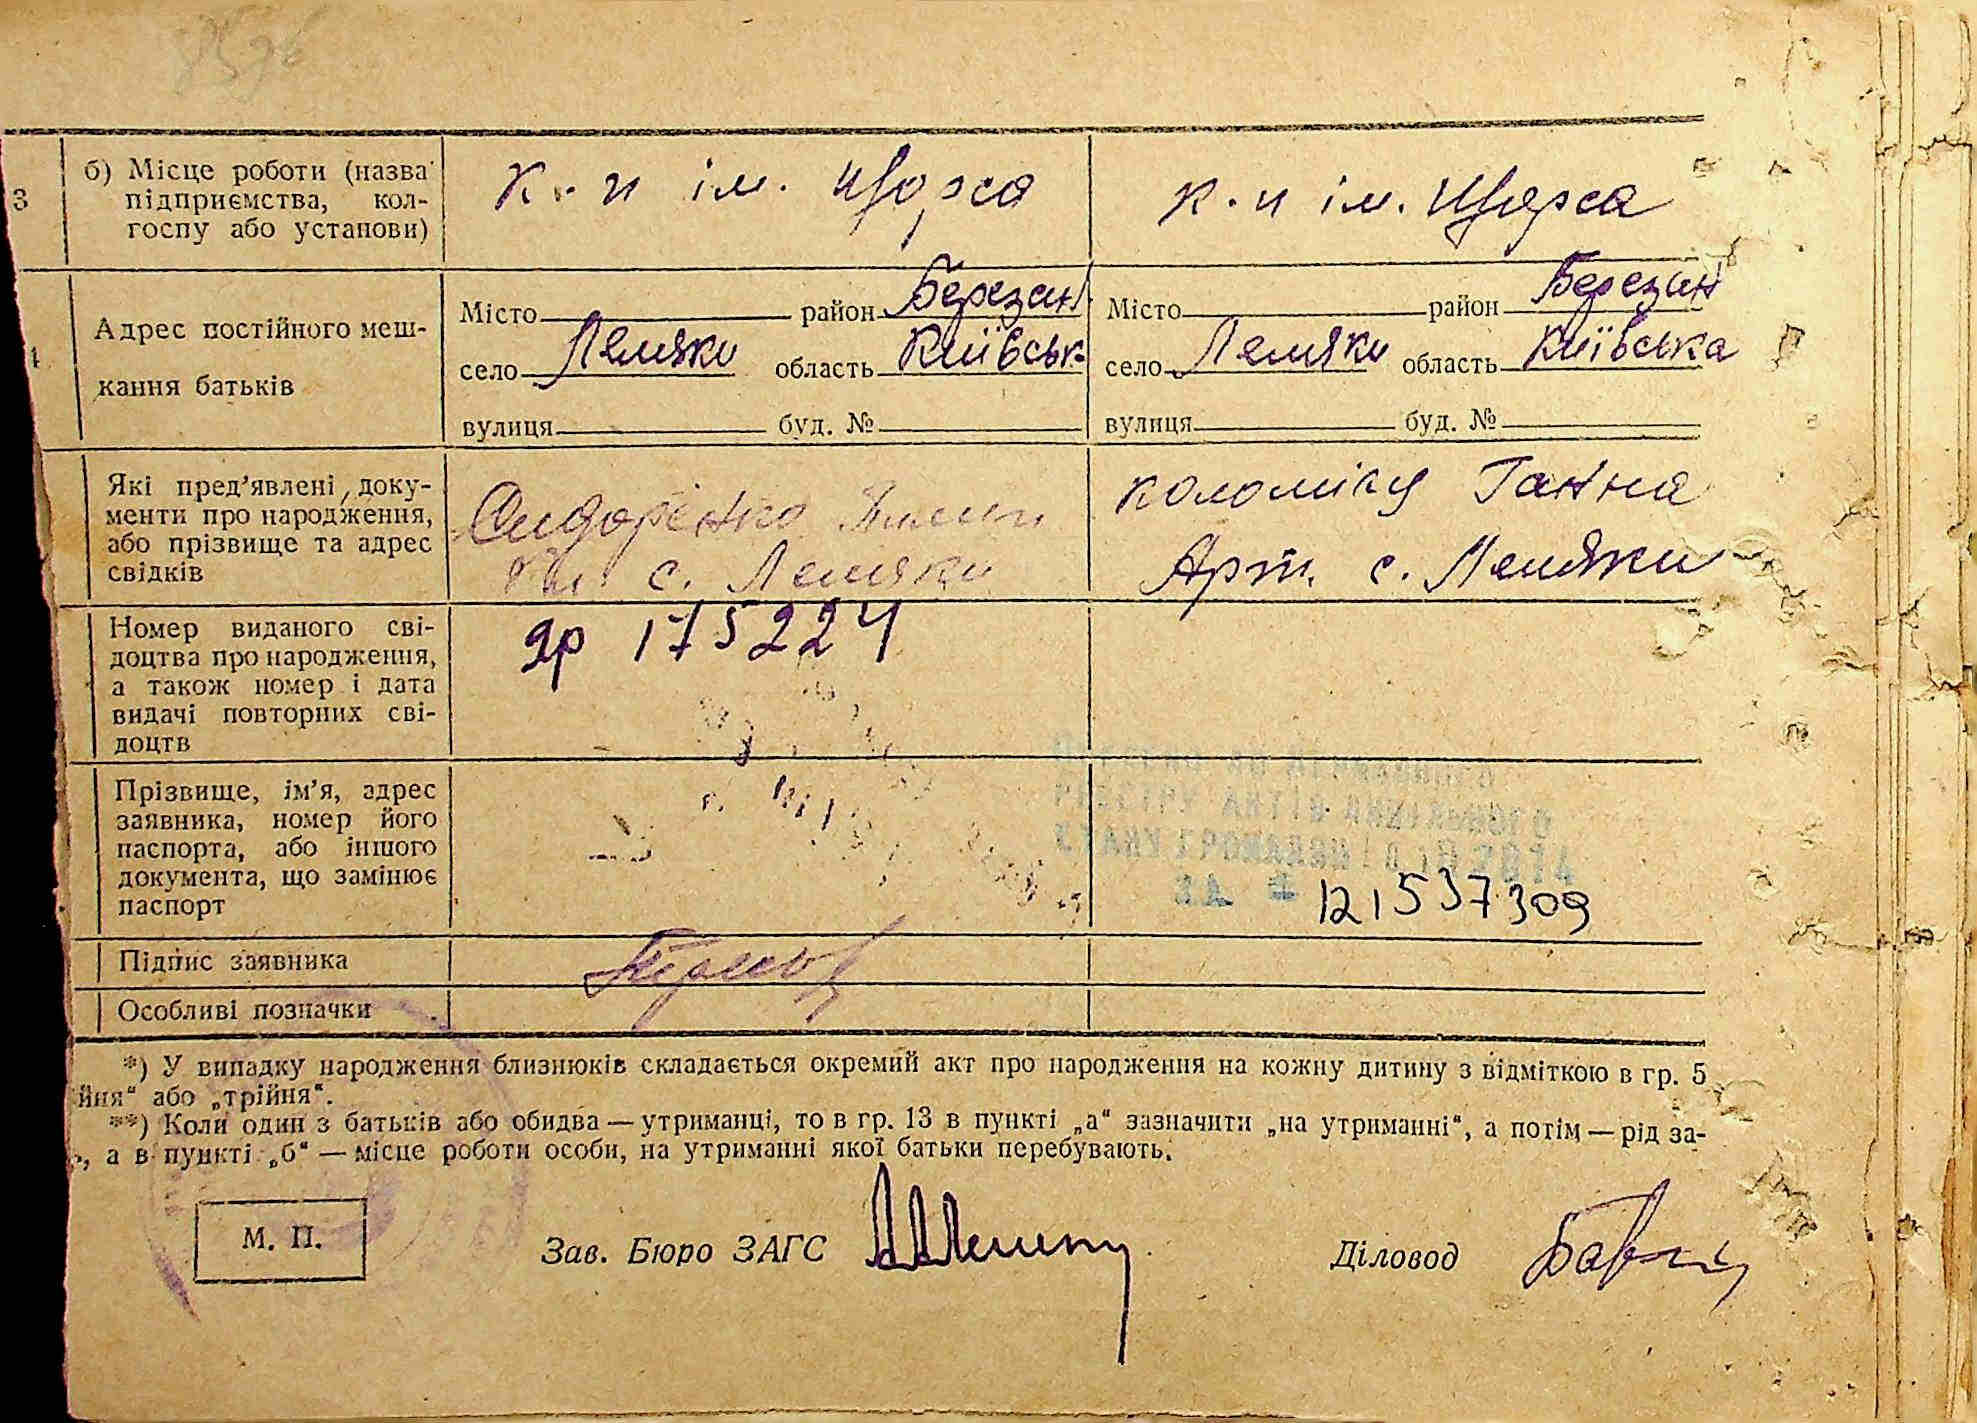 8576
3 б) Місце роботи (назва підприємства, кол-госпу або установи)
к. и ім. Щорса
к. и ім. Щорса
Адрес постійного меш-
кання батьків
Місто район Березан
село Лемяки область Київськ
вулиця буд. №
Місто район Березан
село Лемяки область Київська
вулиця буд. №
Які пред’явлені доку-
менти про народження,
або прізвище та адрес
свідків
Сидоренко
с. Лемяки
Коломієц Ганна
Арт. с. Лемяки
Номер виданого сві-
доцтва про народження,
а також номер і дата
видачі повторних сві-
доцтв
яр 175224
Прізвище, ім’я, адрес
заявника, номер його
паспорта, або іншого
документа, що замінює
паспорт
ДО ДЕРЖАВНОГО
РЕЄСТРУ АКТІВ ЦИВІЛЬНОГО
СТАНУ ГРОМАДЯН 2014
ЗА № 121537309
Підпис заявника
Особливі позначки
*) У випадку народження близнюків складається окремий акт про народження на кожну дитину з відміткою в гр. 5
йня“ або „трійня“.
**) Коли один з батьків або обидва — утриманці, то в гр. 13 в пункті „а“ зазначити „на утриманні“, а потім — рід за-
, а в пункті „б“ — місце роботи особи, на утриманні якої батьки перебувають.
М. П.
Зав. Бюро ЗАГС
Діловод